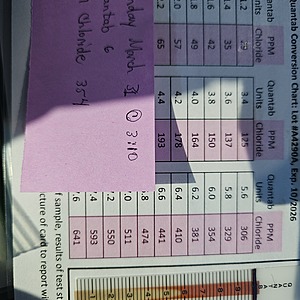 uantab Conversion Chart: Lot#A4290A, Exp. 10/2026
Quantab PPM Quantab PPM Quantab PPM
Units Chloride Units Chloride Units Chloride
.2 29 3.4 125 5.6 306
.4 35 3.6 137 5.8 329
.6 42 3.8 150 6.0 354
.8 49 4.0 164 6.2 381
.0 57 4.2 178 6.4 410
.2 65 4.4 193 6.6 441
.8 474
.0 511
.2 550
.4 593
.6 641
nday March 31 @ 3:10
antab 6
Chloride 354
f sample, results of test st
cture of card to report wi